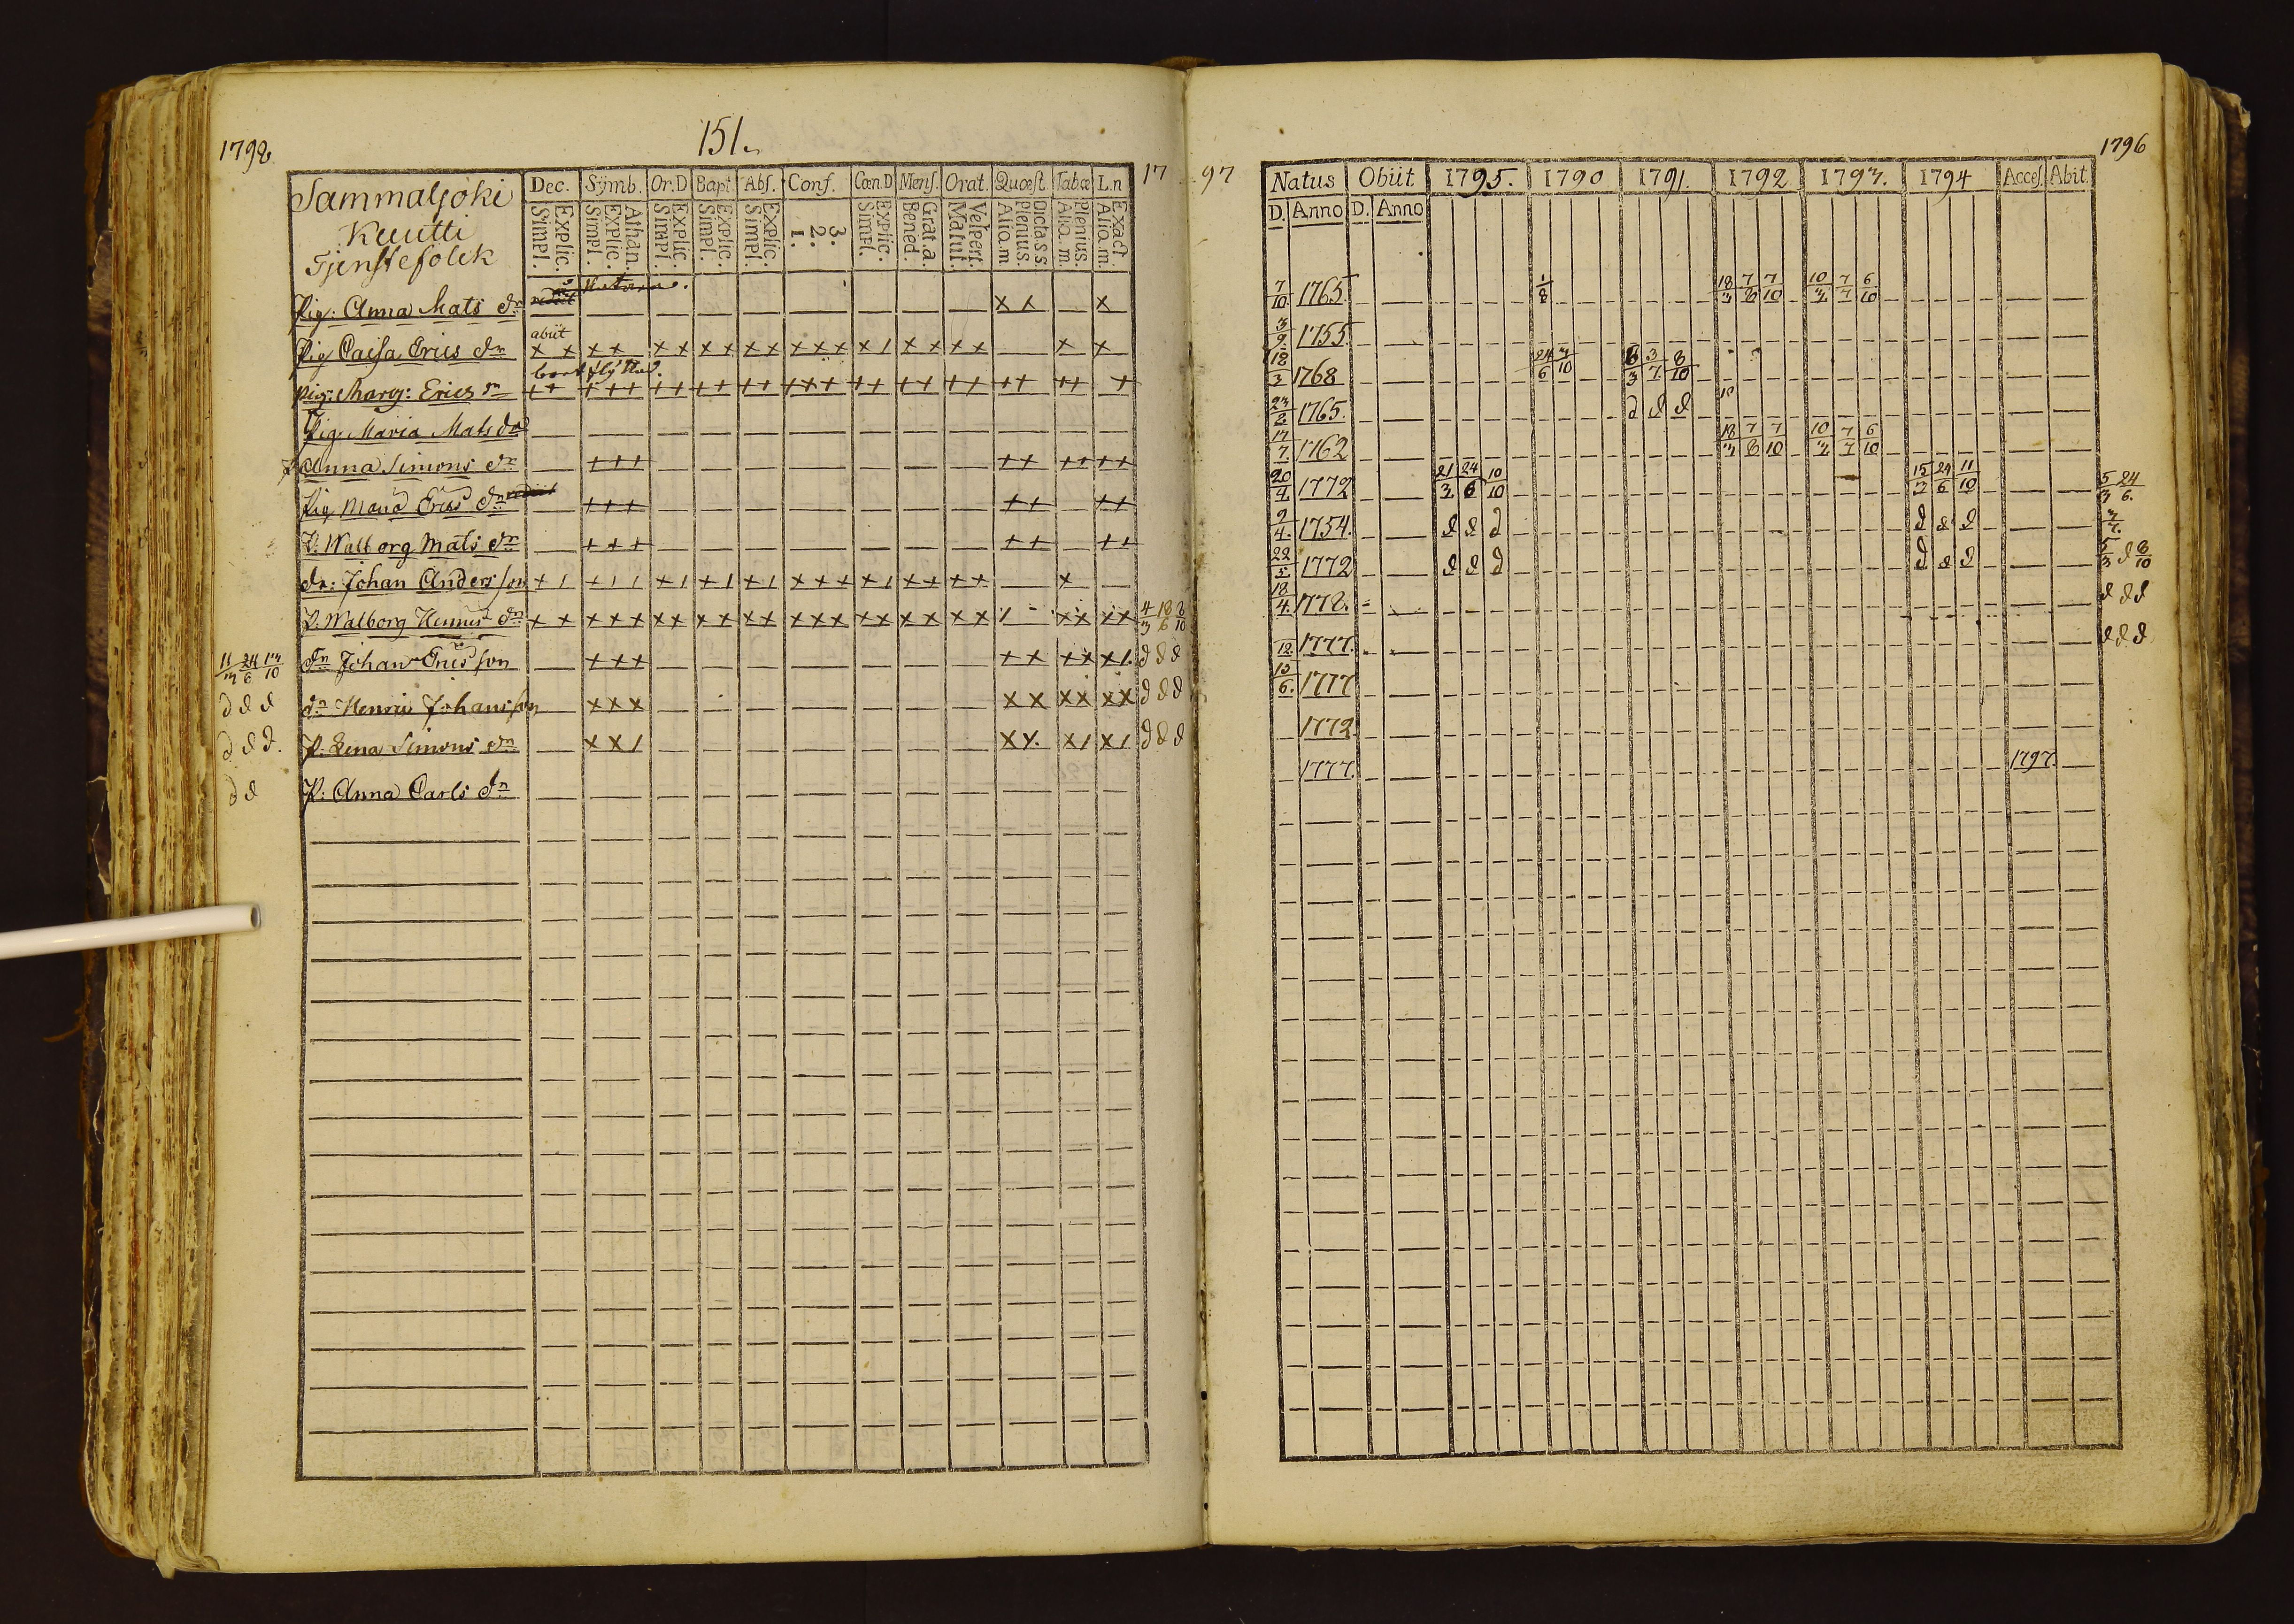 1798
151.
Sammaljoki
Kuutti
Tjenstefolck
Dec. Symb. Or.D Bapt. Abs. Conf. Cœn.D Mens. Orat. Quæst. Tabæ L.n
Explic. Simpl. Athan. Explic. Simpl. Explic. Simpl. Explic. Simpl. Explic. Simpl. 3. 2. 1. Explic. Simpl. Grat.a. Bened. Vespert. Matut. Dicta s.s. Plenius. Alio.m Plenius. Alia.m. Exact. Alia.m.
Pig: Anna Mats dr x x x
abiit
Pig Caisa Erics dr x x x x x x x x x x x x x x / x x x x x x
Pig: Marg: Erics dr ++ +++ ++ ++ ++ +++ ++ ++ ++ ++ ++ +
Pig. Maria Matsdr
Anna Simons dr +++ ++ ++ ++
Pig Maria Erics dr +++ ++ ++
P. Walborg Mats dr +++ ++ ++
dr: Johan Andersson + / + / / + / + / + / + + + + / + + + + x
P. Walborg Henrics dr x x x x x x x x x x x x x x x x x x x x x / x x x x 4/3 18/6 8/10
11/3 24/6 13/10 dr Johan Ericsson +++ ++ ++ x / d d d
d d d dr Henric Johansson x x x x x x x x x d d d
d d d. P. Lena Simons dr x x / x x. x / x / d d d
d d P: Anna Carls dr
17 97
1796
Natus Obiit 1795. 1790 1791. 1792 1793. 1794 Acces. Abit
D. Anno D. Anno
7/10 1765. 1/8 18/3 7/8 7/10 10/3 7/7 6/10
3/9 1755.
12/3 1768 24/6 3/10 6/3 3/7 8/10
23/2 1765. d d d
17/7 1762 18/3 7/8 7/10 10/3 7/7 6/10
20/4 1772 21/3 24/6 10/10 15/3 24/6 11/10 5/3 24/6.
9/4. 1754. d d d d d d
22/5 1772 d d d d d d 5/3 d 8/10
18/4. 1778. d d d
12 1777. d d d
15/6. 1777
1772.
1777. 1797.